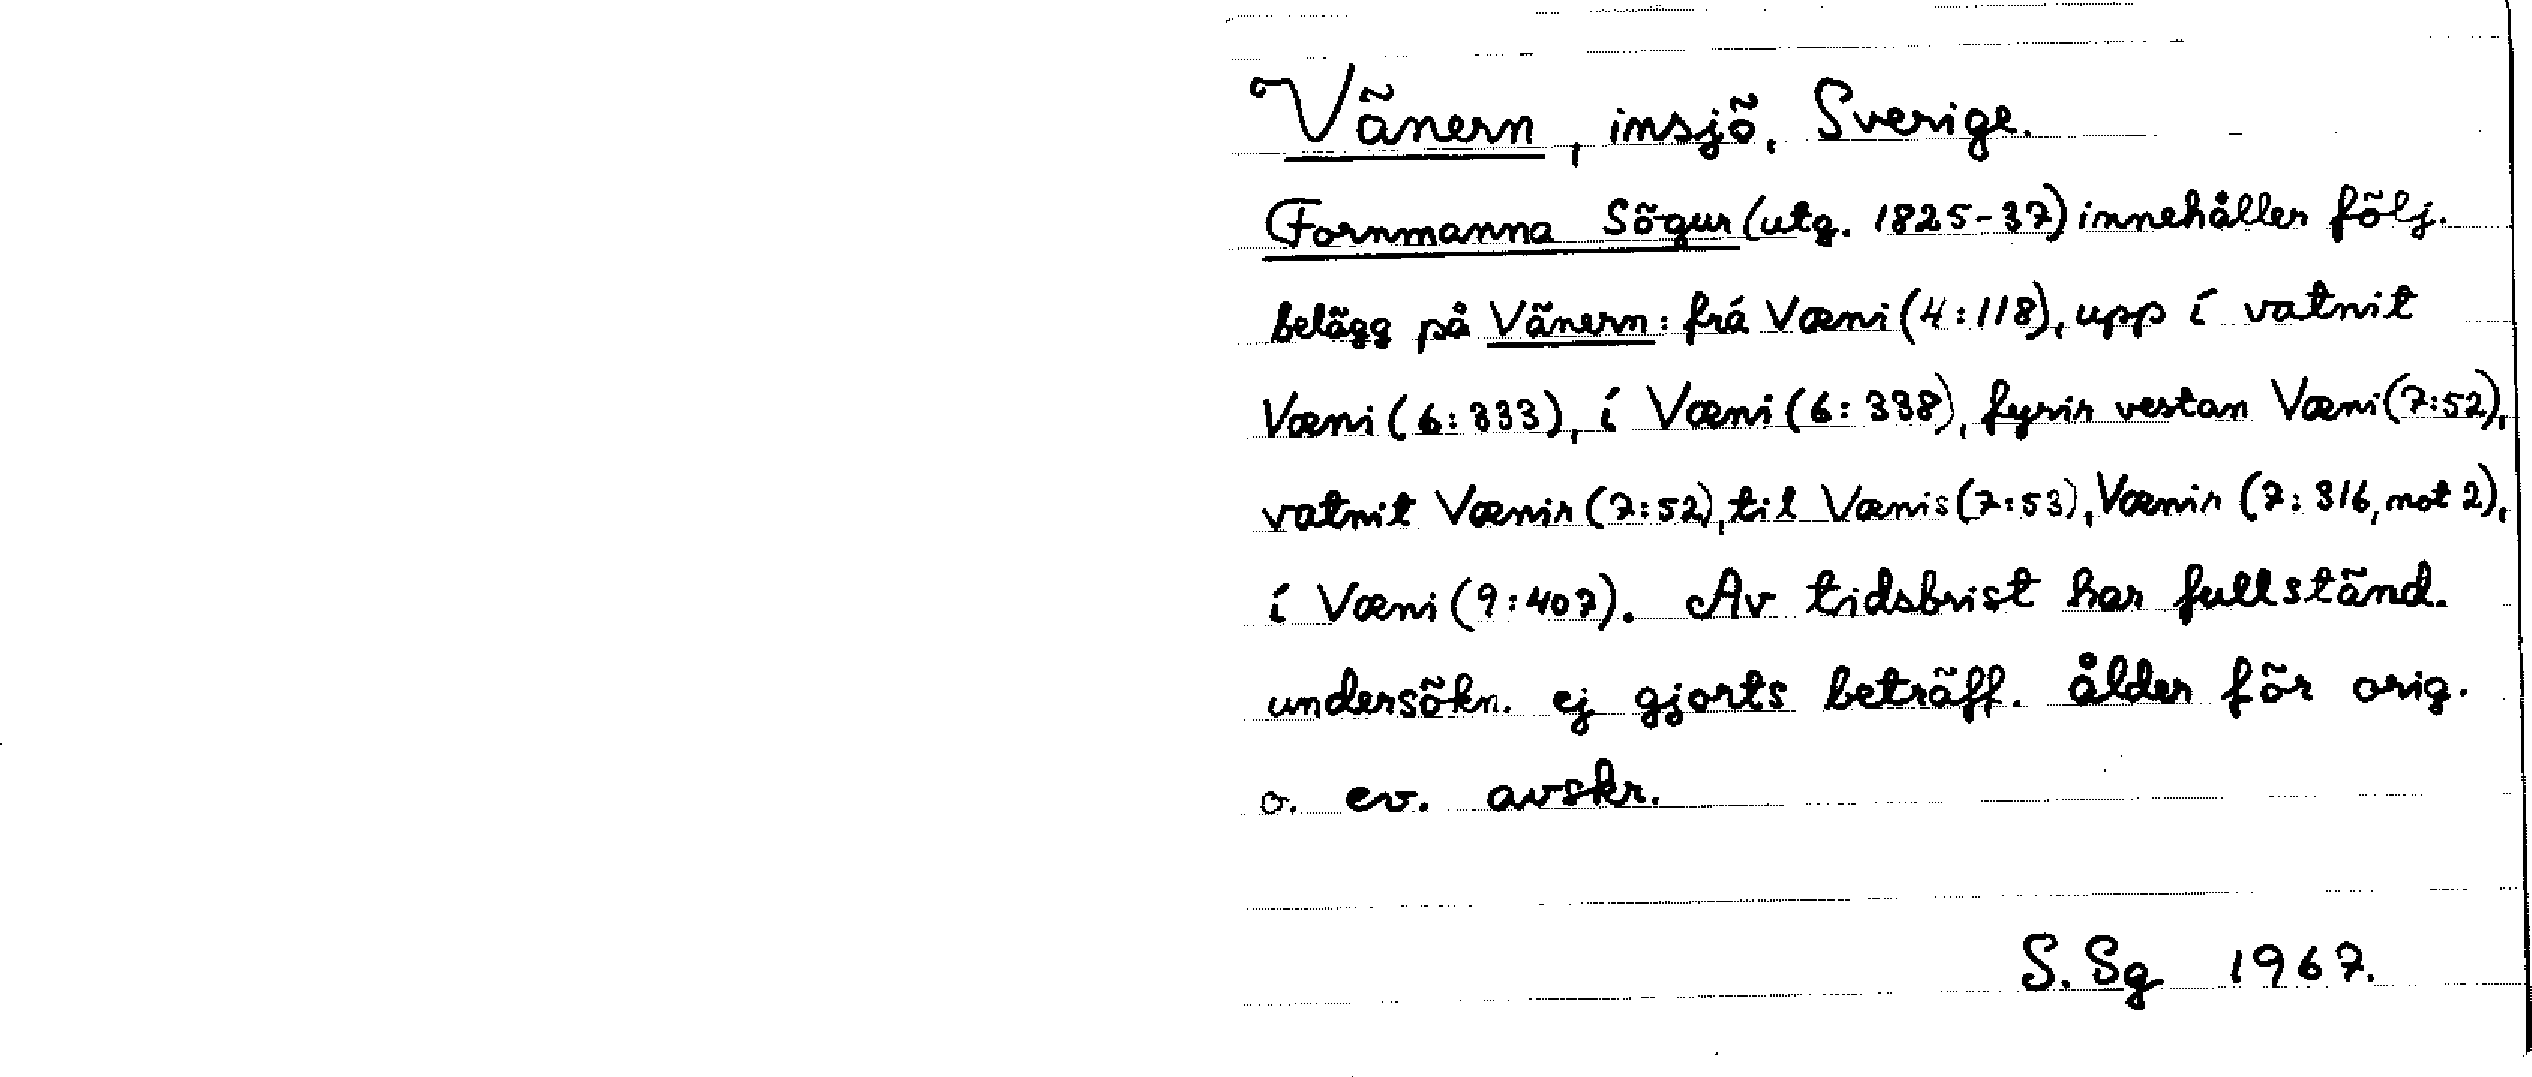 Vänern, insjö, Sverige.
Fornmanna Sögur (utg. 1825-37) innehåller följ.
belägg på Vänern: frá Væni (4:118), upp í vatnit
Væni (6:333), í Væni (6:338), fyrir vestan Væni (7:52),
vatnit Vænir (7:52), til Vænis (7:53), Vænir (7:316, not 2),
í Væni (9:407). Av tidsbrist har fullständ.
undersökn. ej gjorts beträff. ålder för orig.
o. ev. avskr.
S. Sg 1967.